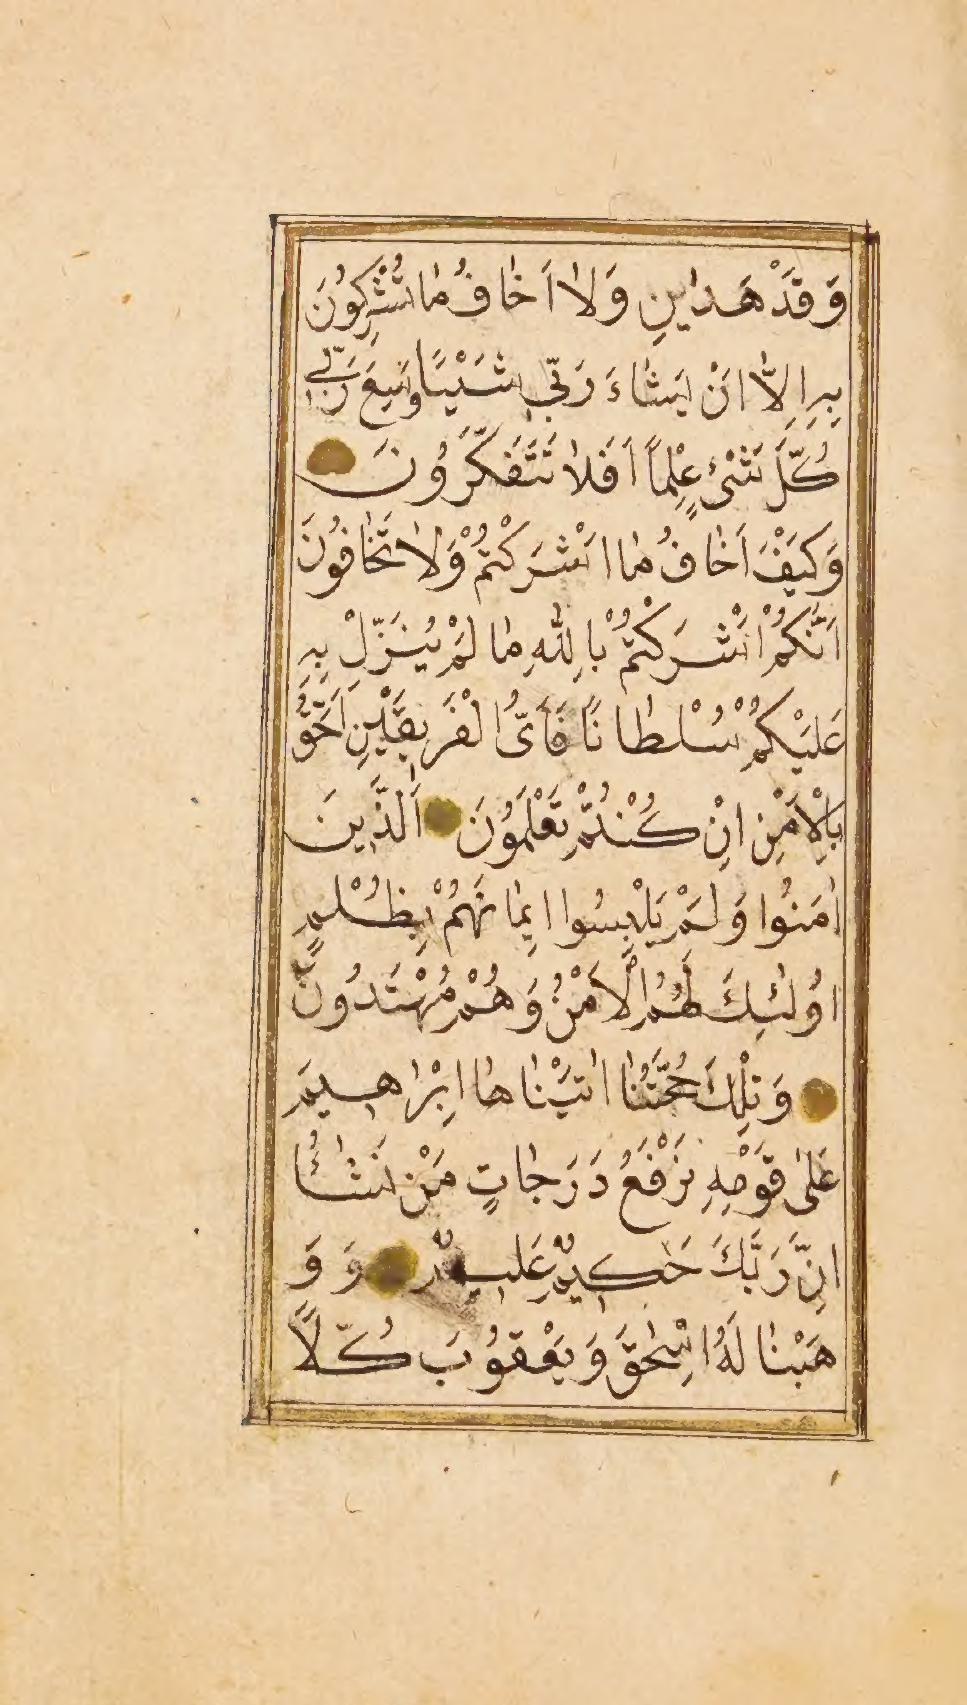 وَقَدْ هَدٰاينِ وَلاٰ اَخٰافُ مٰا تُشْرِكُونَ
بِهِ اِلاَّ اَنْ يَشٰاءَ رَبّي شَيْئًا وَسِعَ رَبّي
كُلَّ شَيْءٍ عِلْماً اَفَلاٰ تَتَفَكَّرُونَ
وَكَيْفَ اَخٰافُ مٰا اَشْرَكْتُمْ وَلاٰ تَخٰافُونَ
اَنَّكُمْ اَشْرَكْتُمْ بِاللهِ مٰا لَمْ يُنَزِّلْ بِهِ
عَلَيْكُمْ سُلْطٰانًا فَاَيُّ الْفَريقَيْنِ اَحَقُّ
بِالْاَمْنِ اِنْ كُنْتُمْ تَعْلَمُونَ اَلَّذينَ
اٰمَنُوا وَلَمْ يَلْبِسُوا ايمٰانَهُمْ بِظُلْمٍ
اُولٰئِكَ لَهُمُ الْاَمْنُ وَهُمْ مُهْتَدُونَ
وَتِلْكَ حُجَّتُنٰا اٰتَيْنٰاهٰا اِبْرٰاهيمَ
عَلىٰ قَوْمِهِ نَرْفَعُ دَرَجٰاتٍ مَنْ نَشٰاۤئُ
اِنَّ رَبَّكَ حَكيمٌ عَليمٌ وَ وَ
هَبْنٰا لَهُ اِسْحٰقَ وَيَعْقُوبَ كُلًّا